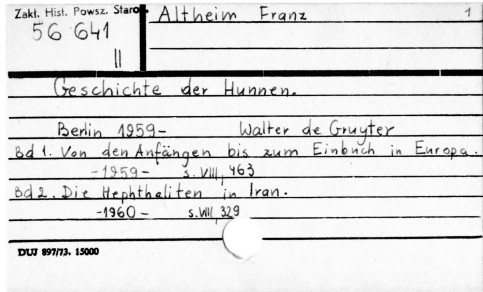 Zakł. Hist. Powsz. Staro
Altheim Franz 1
56 641
II
Geschichte der Hunnen.
Berlin 1959- Walter de Gruyter
Bd 1. Von den Anfängen bis zum Einbuch in Europa.
-1959- s. VIII, 463
Bd 2. Die Hephthaliten in Iran.
-1960- s. VIII, 329
DUJ 897/73. 15000